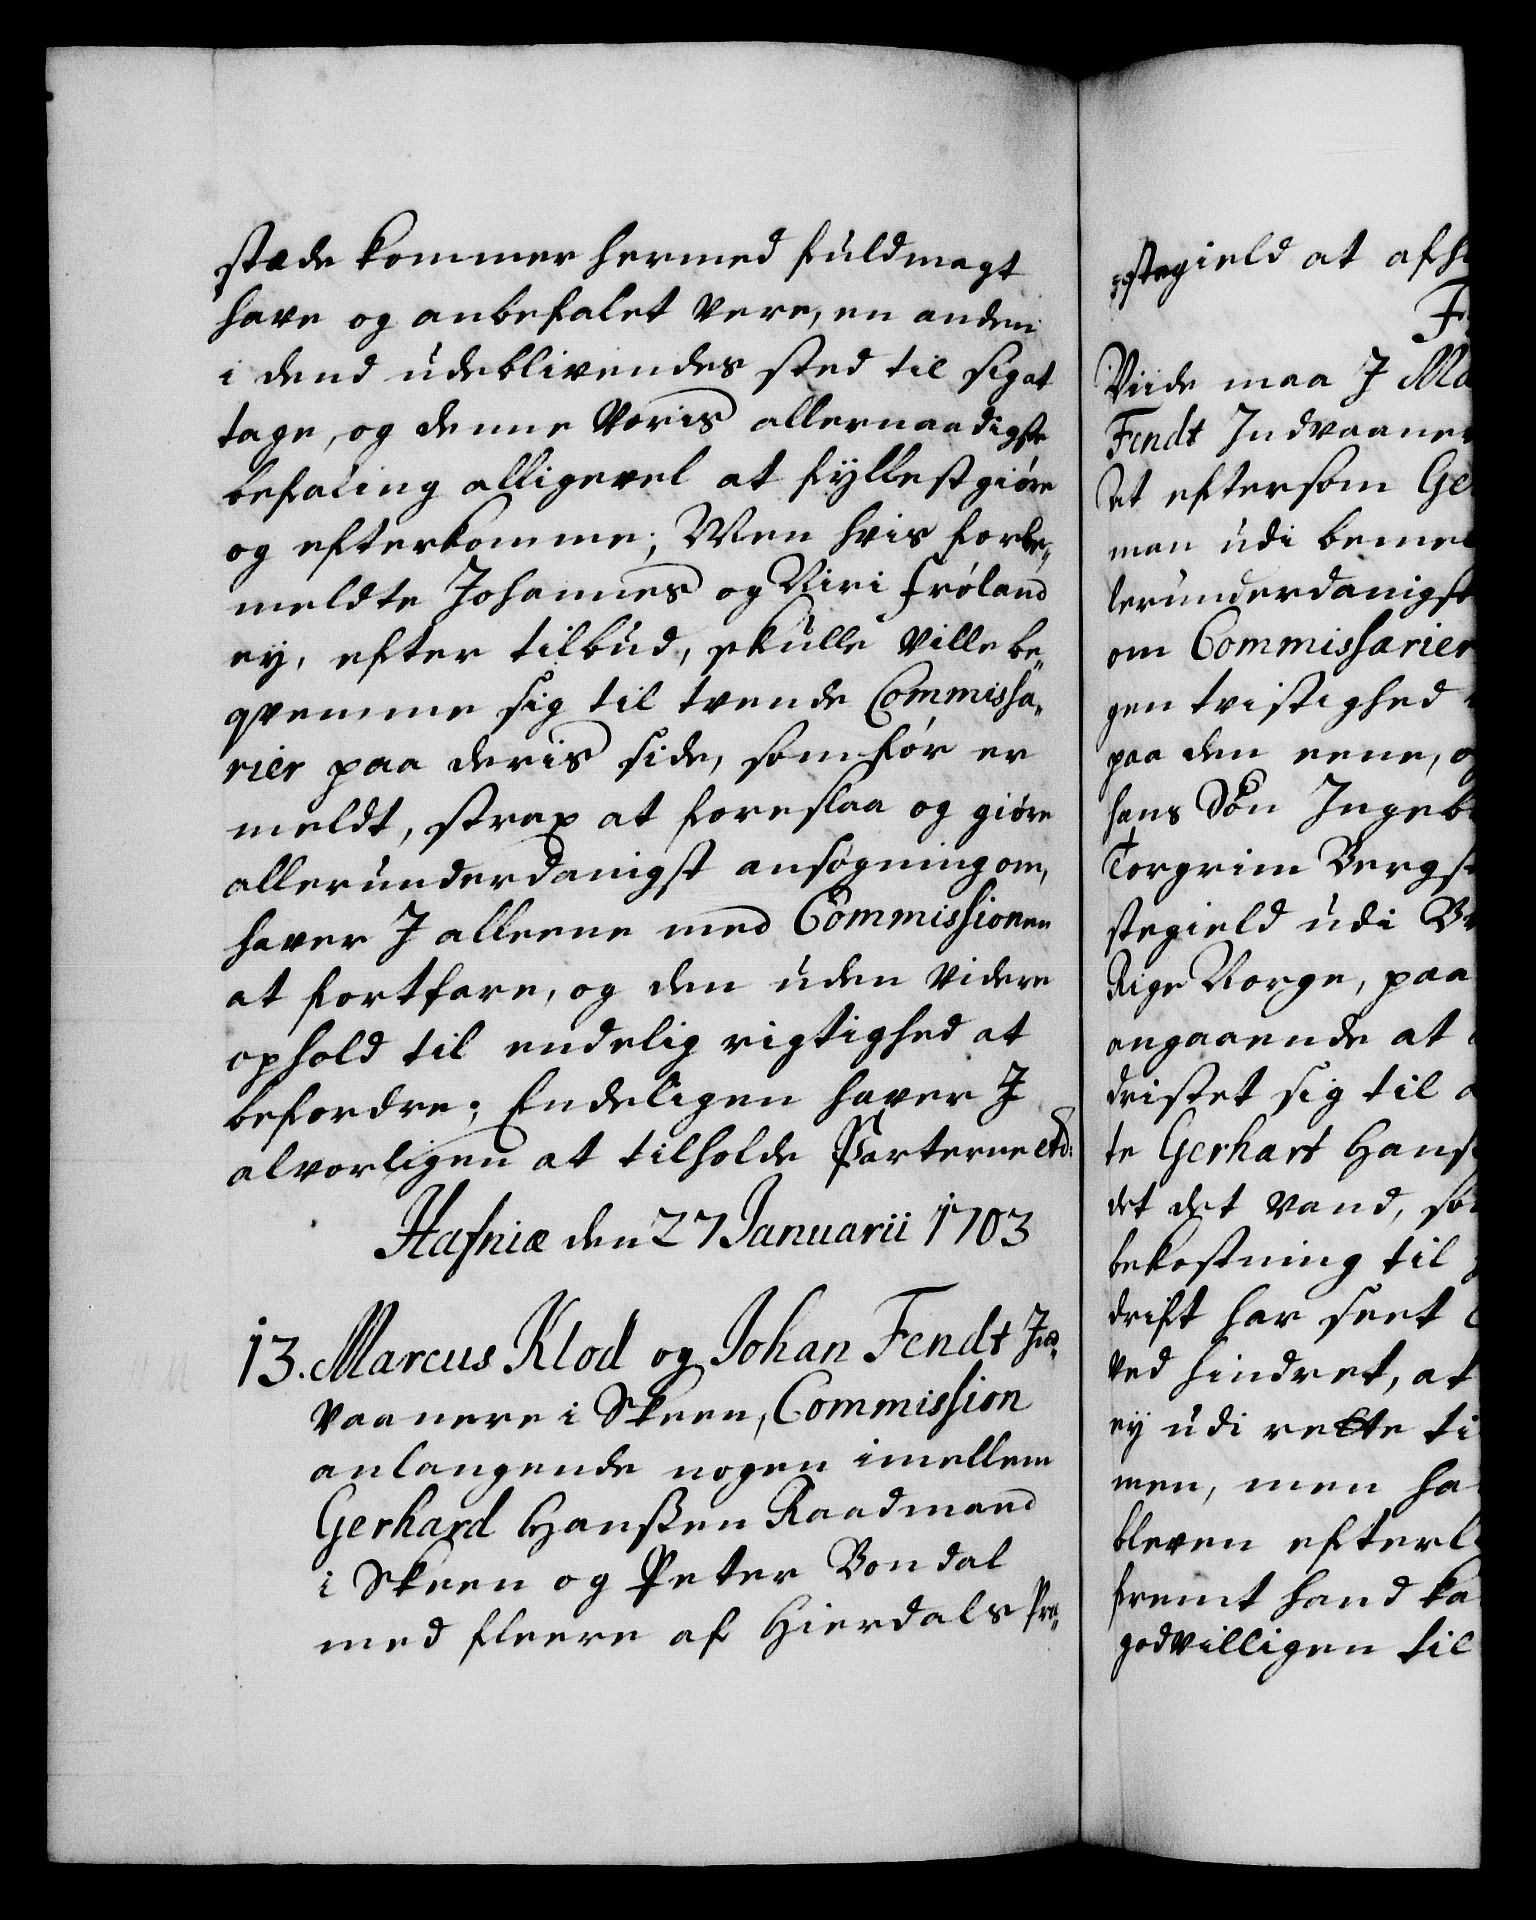 stæde kommer hermed fuldmagt
have og anbefalet være, en anden
i dend udeblivendes sted til sig at
tage, og denne Voris allernaadigste
befaling alligevel at fyllestgiøre
og efterkomme; Men hvis forbe„
meldte Johannes og Siri Frøland
ey, efter tilbud, skulle ville be„
qvemme sig til tvende Commissa„
rier paa deris side, som før er
meldt, strax at foreslaa og giøre
allerunderdanigst ansøgning om,
haver J alleene med Commissionen
at fortfare, og den uden videre
ophold til endelig rigtighed at
befordre; Endeligen haver J
alvorligen at tilholde Parterne etc:
Hafniæ den 27 Januarii 1703
13. Marcus Klod og Johan Fendt Ind„
vaanere i Skeen, Commission
anlangende nogen imellem
Gerhard Hanßen Raadmand
i Skeen og Peter Bondal
med fleere af Hierdals Præ„
stegield at afh
F
Viide maa J Ma
Fendt Indvaaner
At eftersom Ge
man udi bemel
lerunderdanigst
om Commissarier
gen tvistighed
paa den eene, og
hans Søn Ingeb
Torgrim Bergs
stegield udi Br
Rige Norge, paa
angaaende at
dristet sig til a
te Gerhart Hans
det det vand, so
bekostning til
drift har seet
ved hindret, at
ey udi rette ti
men, men ha
bleven efterl
fremt hand ka
godvilligen til